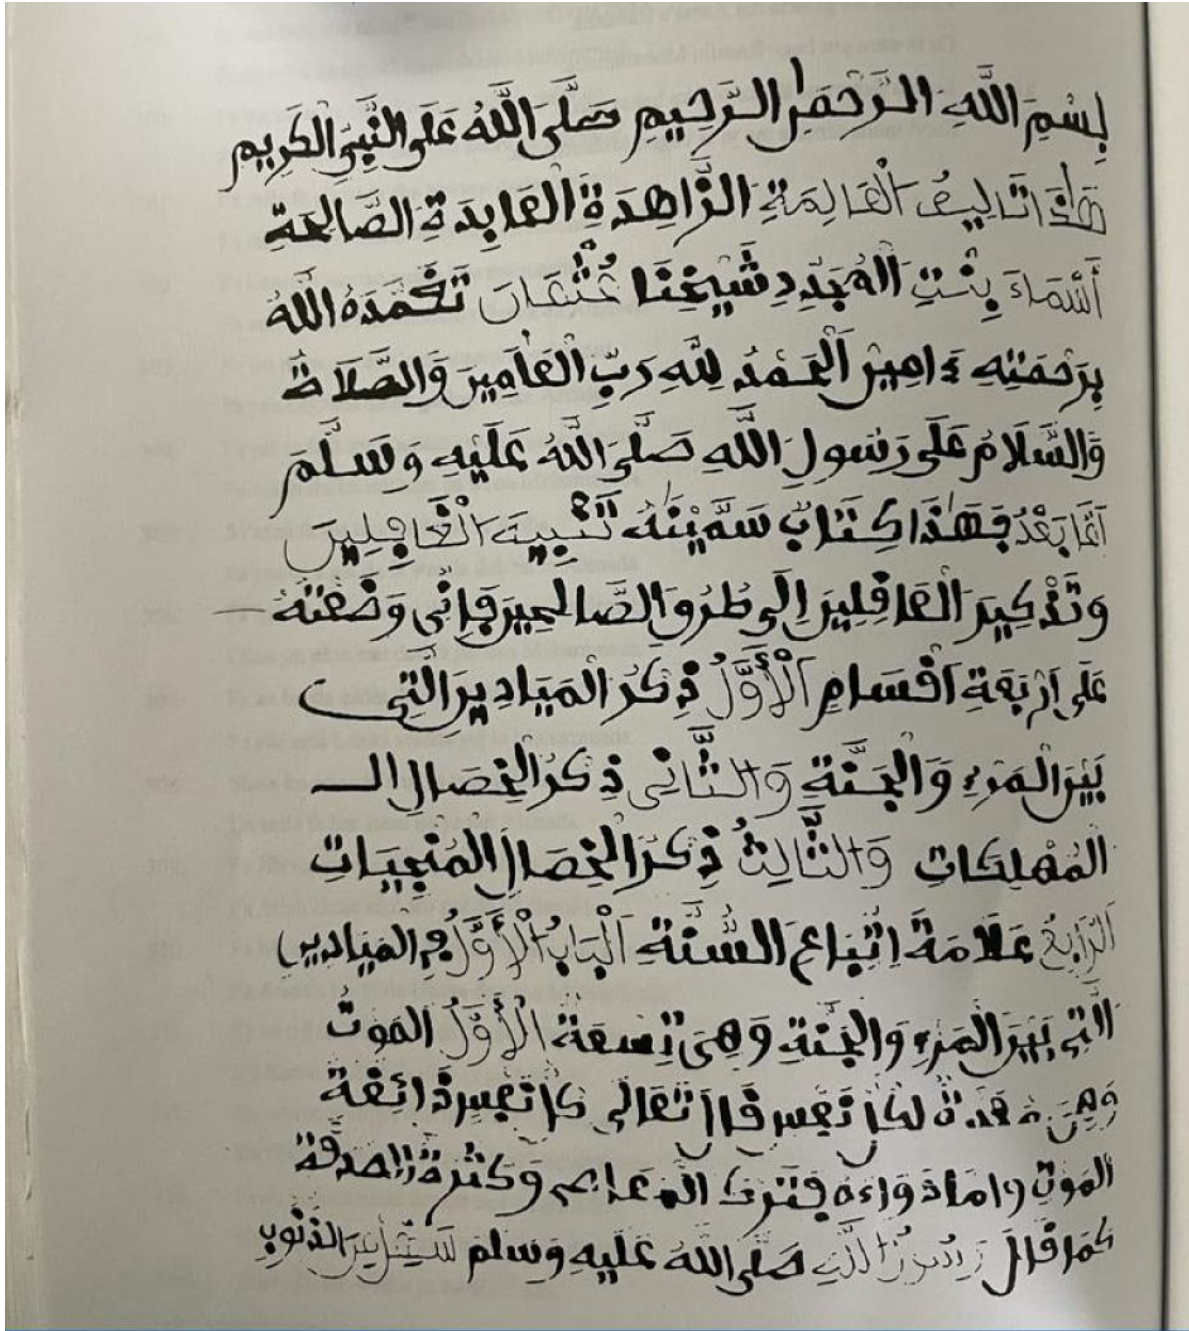 بِسْمِ اللَّهِ الرَّحْمَٰنِ الرَّحِيمِ صَلَّى اللَّهُ عَلَى النَّبِيِّ الْكَرِيمِ
هَٰذَا تَالِيفُ الْعَالِمَةِ الزَّاهِدَةِ الْعَابِدَةِ الصَّالِحَةِ
أَسْمَاءَ بِنْتِ الْمُجَدِّدِ شَيْخِنَا عُثْمَانَ تَغَمَّدَهُ اللَّهُ
بِرَحْمَتِهِ ءَامِينَ الْحَمْدُ لِلَّهِ رَبِّ الْعَٰلَمِينَ وَالصَّلَاةُ
وَالسَّلَامُ عَلَى رَسُولِ اللَّهِ صَلَّى اللَّهُ عَلَيْهِ وَسَلَّمَ
أَمَّا بَعْدُ فَهَٰذَا كِتَابٌ سَمَّيْتُهُ تَنْبِيهَ الْغَافِلِينَ
وَتَذْكِيرَ الْعَاقِلِينَ إِلَى طُرُقِ الصَّالِحِينَ فَإِنِّي وَضَعْتُهُ
عَلَى أَرْبَعَةِ أَقْسَامٍ الْأَوَّلُ ذِكْرُ الْمَيَادِينِ الَّتِي
بَيْنَ الْمَرْءِ وَالْجَنَّةِ وَالثَّانِي ذِكْرُ الْخِصَالِ الـ
الْمُهْلِكَاتِ وَالثَّالِثُ ذِكْرُ الْخِصَالِ الْمُنْجِيَاتِ
الرَّابِعُ عَلَامَةُ اتِّبَاعِ السُّنَّةِ الْبَابُ الْأَوَّلُ فِي الْمَيَادِينِ
الَّتِي بَيْنَ الْمَرْءِ وَالْجَنَّةِ وَهِيَ تِسْعَةٌ الْأَوَّلُ الْمَوْتُ
وَهِيَ لكل نفس قال تعالى كل نفس ذائقة
الموت واما دواءه فترك وكثرة الصدقة
كما قال رَسُولُ اللَّهِ صَلَّى اللَّهُ عَلَيْهِ وَسَلَّمَ الذنوب